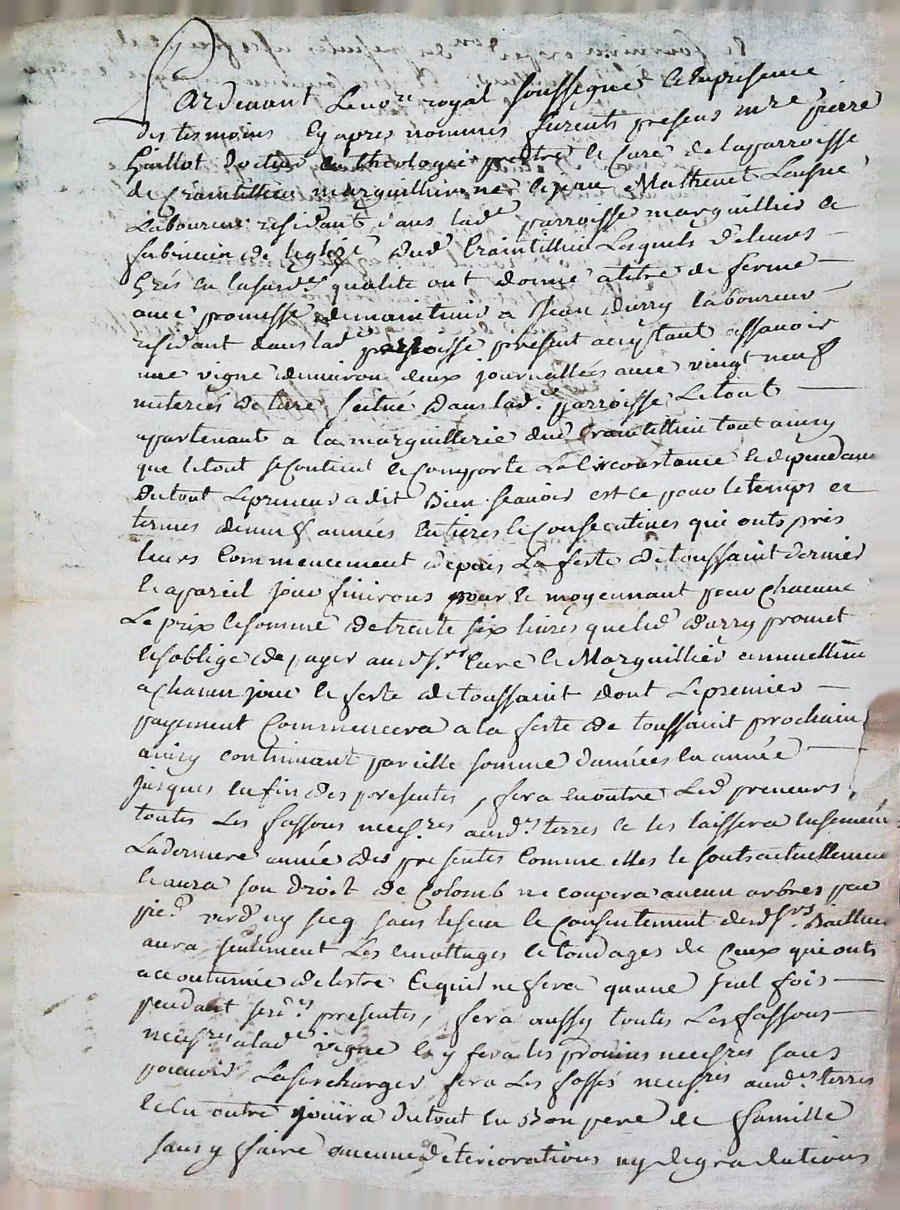 Pardevant Le no.re royal soussigné et en presence
des tesmoins cy apres nommés furents presens m.re pierre
Gaillot docteur en theologie prestre et curé de la parroisse
de Craintillieu marguillier né et jean Mathevet Laisné
Laboureur residant dans lad.e parroisse marguillier et
fabricien de leglize dud. Craintillieu Lesquels de leurs
Grés en lasusd.e qualité ont donné a titre de ferme
avec promesse de maintenir a Jean durry laboureur
residant dans lad.e parroisse present acceptant assavoir
une vigne denviron deux journallées avec vingt neuf
meterées de terre scitué dans lad.e parroisse Le tout
appartenant a la marguillerie dud. Craintillieu tout ainsy
que le tout se Contient et Comporte La Circonstance et dependance
Du tout Le preneur a dit Bien sçavoir est ce pour le temps et
termes de neuf années Entieres et Consecutives qui onts pris
leurs Commencement depuis La feste de toussaint dernier
et a pareil jour finirons pour et moyennant pour Chacune
Le prix et somme de trente six livres que led. durry promet
et soblige de payer aud. s.rs Curé et Marguillier annuellem.
a chacun jour et feste de toussaint dont Le premier
payement Commencera a la feste de toussaint prochain
ainsy continuant pareille somme dannées en année
jusques en fin des presentes, fera en outre Led. preneur
toutes Les fassons necess.res ausd. terres et les laissera ensemen
La derniere année des presentes Comme elles le sonts actuellement
et aura son droit de Colomb ne coupera aucun arbres par
pied verd ny secq sans le sceu et Consentement desd. s.rs Bailleurs
aura seulement Les emottages et tondages de Ceux qui onts
accoutumée de lestre Ce quil ne fera qu'une seul fois
pendant les d.es presentes, fera aussy toutes Les fassons
necess.res a lad.e vigne et y fera les proüins necess.res sans
pouvoir La surcharger fera Les fossés necess.res ausd.es terres
et en outre jouira du tout en Bon pere de famille
sans y faire aucune deteriorations ny degradations